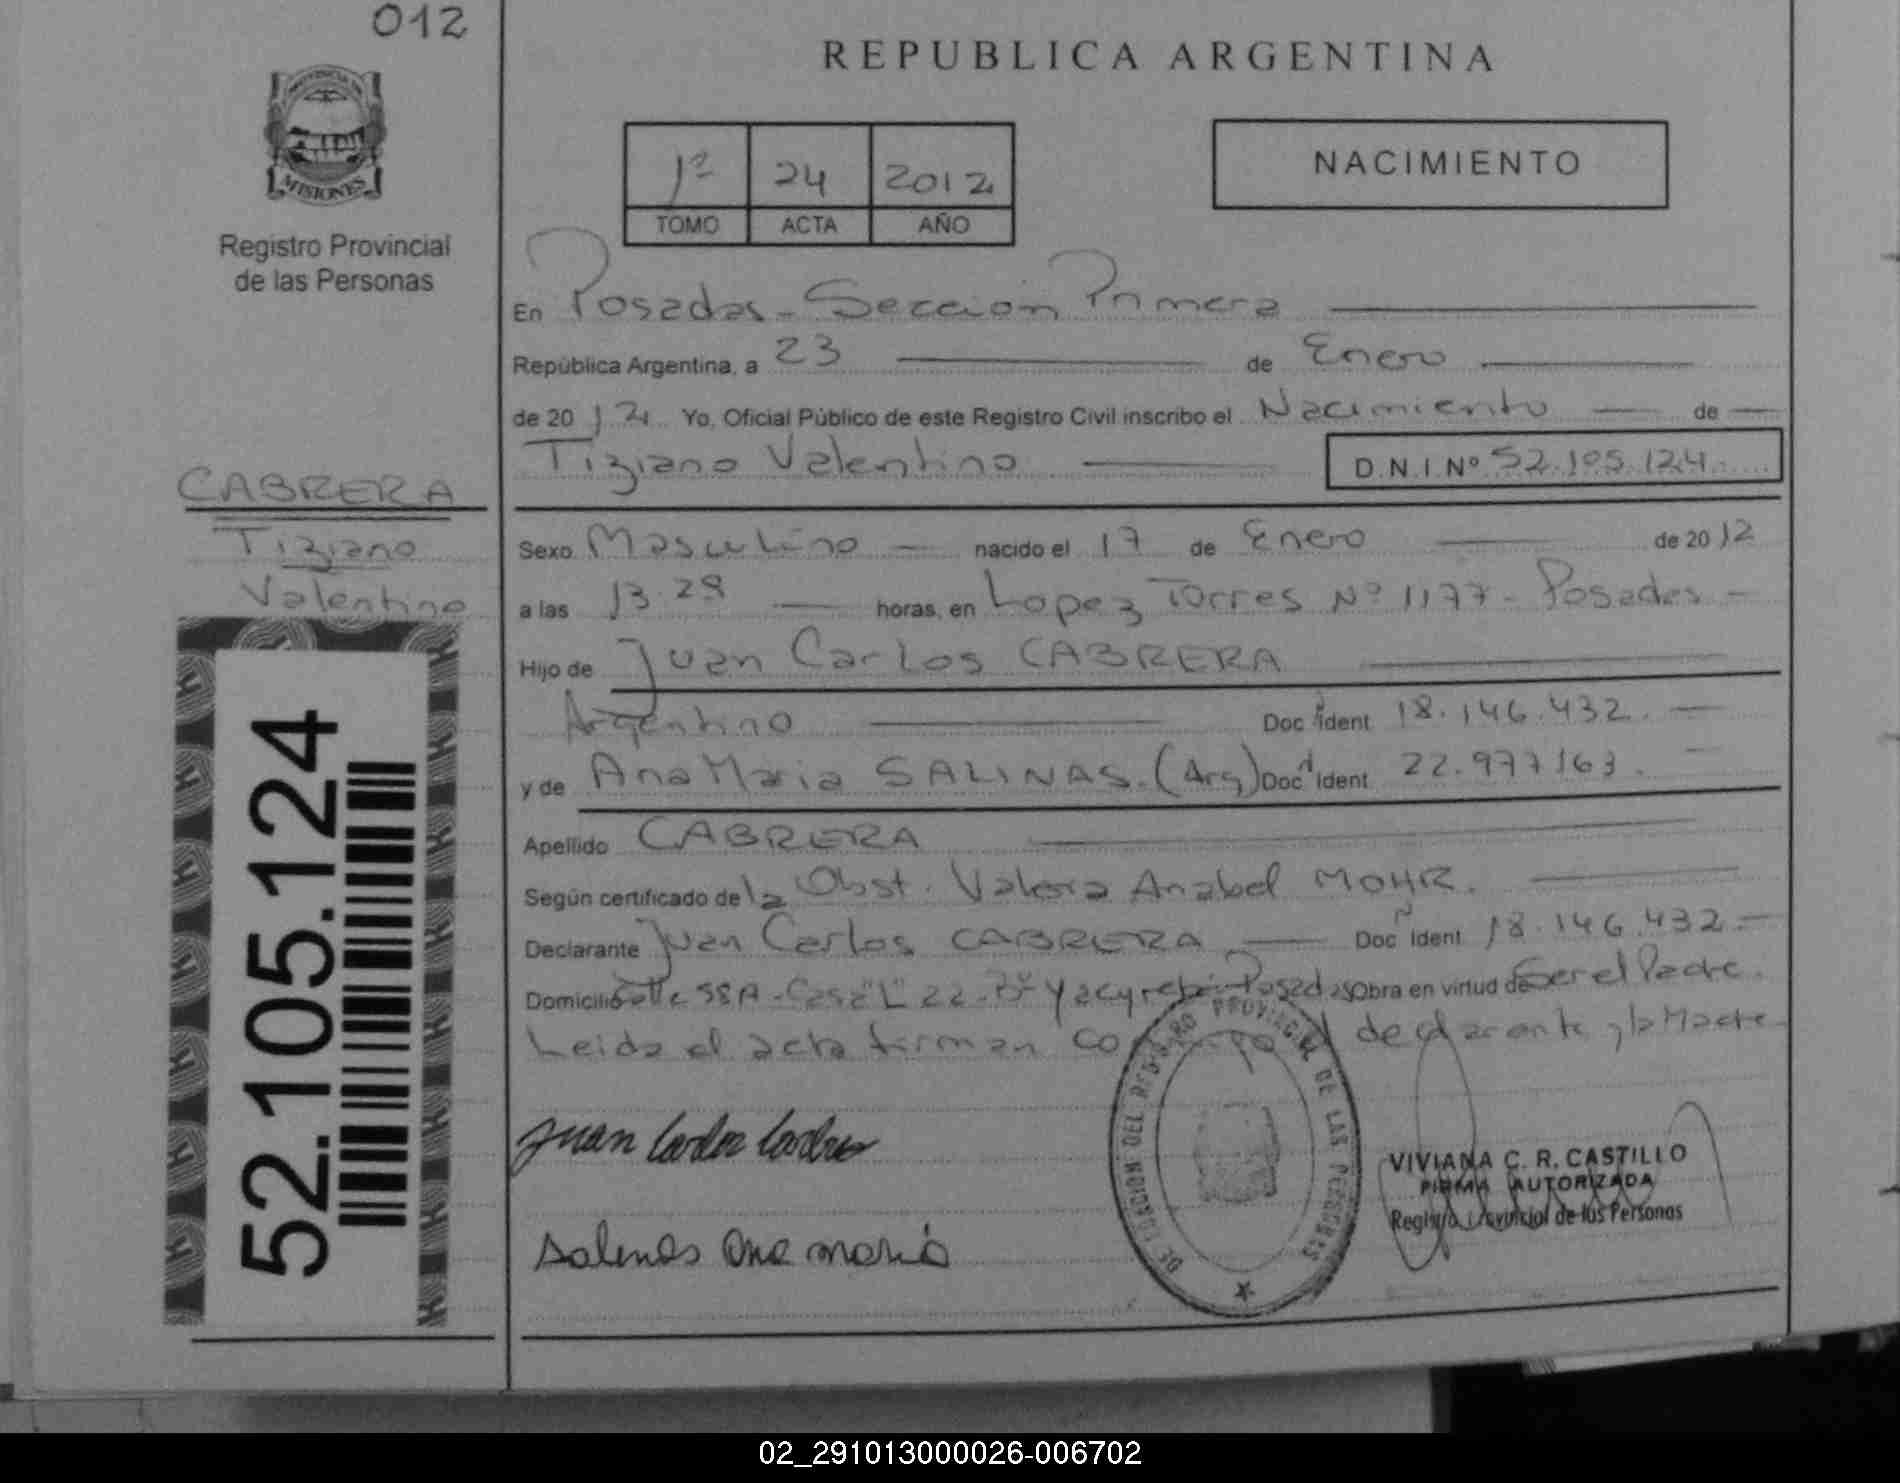 012
PROVINCIA DE
MISIONES
Registro Provincial
de las Personas
CABRERA
Tiziano
Valentino
52.105.124
REPUBLICA ARGENTINA
1º 24 2012
TOMO ACTA AÑO
NACIMIENTO
En Posadas - Sección Primera
República Argentina, a 23 de Enero
de 2012 Yo, Oficial Público de este Registro Civil inscribo el Nacimiento de
Tiziano Valentino D.N.I.Nº 52.105.124
Sexo Masculino nacido el 17 de Enero de 2012
a las 13.28 horas, en Lopez Torres Nº 1177 - Posadas -
Hijo de Juan Carlos CABRERA
Argentino Doc Ident 18.146.432.
y de Ana Maria SALINAS. (Arg) Doc Ident 22.977163.
Apellido CABRERA
Según certificado de la Obst. Valeria Anabel MOHR.
Declarante Juan Carlos CABRERA Doc Ident 18.146.432.-
Domicilio Calle 58A - Casa "L" 22 - Bº Yacyreta - Posadas Obra en virtud de Ser el Padre.
Leida el acta firman declarante y la Madre
DIRECCION DEL REGISTRO PROVINCIAL DE LAS PERSONAS
Juan Carlos
Salinas Ana maria
VIVIANA C. R. CASTILLO
FIRMA AUTORIZADA
Registro Provincial de las Personas
02_291013000026-006702